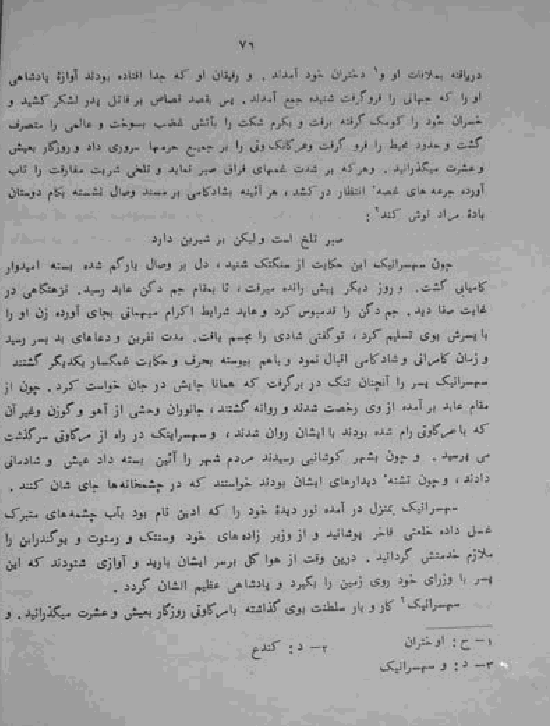 ۷٦
دریافته بملاقات او و۱ دختران خود آمدند . و رفیقان او که جدا افتاده بودند آوازهٔ پادشاهی
او را که جهانی را فروگرفت شنیده جمع آمدند . پس بقصد قصاص بر قاتل پدر لشکر کشید و
خسران خود را کومک گرفته برفت و بکرم شکت را بآتش غضب بسوخت و عالمی را متصرف
گشت و حدود محیط را فرو گرفت وهرکانک وتی را بر جمیع حرمها سروری داد و روزگار بعیش
و عشرت میگذرانید . وهر که بر شدت غمهای فراق صبر نماید و تلخی شربت مفارقت را تاب
آورده جرعه های غصه۲ انتظار در کشد ، هر آئینه بشادکامی بر مسند وصال نشسته بکام دوستان
بادهٔ مراد نوش کند :
صبر تلخ است و لیکن بر شیرین دارد
چون سهسرانیک این حکایت از سنگتک شنید ، دل بر وصال یارگم شده بسته امیدوار
کامیابی گشت . و روز دیگر پیش رانده میرفت ، تا بمقام جم دگن عابد رسید . نزهتگاهی در
غایت صفا دید . جم دگن را قدمبوس کرد و عابد شرایط اکرام میهمانی بجای آورده زن او را
با پسرش بوی تسلیم کرد ، توگفتی شادی را مجسم یافت . مدت نفرین و دعاهای بد بسر رسید
و زمان کامرانی و شادکامی اقبال نمود و باهم پیوسته بحرف و حکایت غمگسار یکدیگر گشتند
سهسرانیک پسر را آنچنان تنگ در برگرفت که همانا جایش در جان خواست کرد . چون از
مقام عابد بر آمده از وی رخصت شدند و روانه گشتند ، جانوران وحشی از آهو و گوزن وغیرآن
که با مرگاوتی رام شده بودند با ایشان روان شدند ، و سهسرانیک در راه از مرگاوتی سرگذشت
می پرسید . و چون بشهر کوشانبی رسیدند مردم شهر را آئین بسته داد عیش و شادمانی
دادند ، وچون تشنهٔ دیدارهای ایشان بودند خواستند که در چشمخانه‌ها جای شان کنند .
سهسرانیک بمنزل در آمده نور دیدهٔ خود را که ادین نام بود بآب چشمه های متبرک
غسل داده خلعتی فاخر پوشانید و از وزیر زاده‌های خود وسنتک و رمنوت و یوگندراین را
ملازم خدمتش گردانید . درین وقت از هوا گل برسر ایشان بارید و آوازی شنودند که این
پسر با وزرای خود روی زمین را بگیرد و پادشاهی عظیم الشان گردد .
سهسرانیک۳ کار و بار سلطنت بوی گذاشته بامرگاوتی روزگار بعیش و عشرت میگذرانید . و
۱– ح : او ختران ۲– د : کندع
۳– د : و سهسرانیک